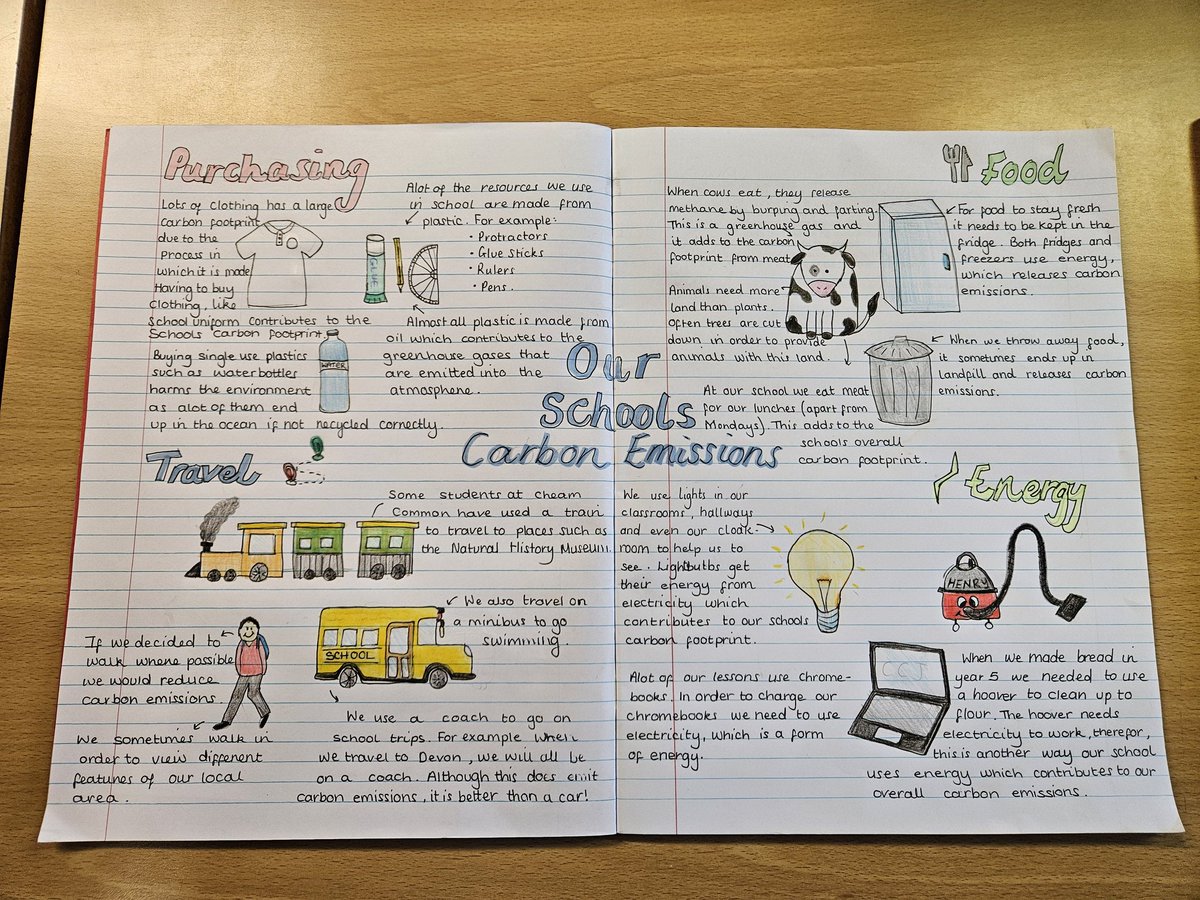 Purchasing
Lots of clothing has a large
carbon footprint
due to the
process in
which it is made
Having to buy
clothing, like
school uniform contributes to the
schools carbon footprint.
Alot of the resources we use
in school are made from
plastic. For example:
• Protractors
• Glue sticks
• Rulers
• Pens.
GLUE
Almost all plastic is made from
oil which contributes to the
greenhouse gases that
are emitted into the
atmosphere.
Buying single use plastics
such as water bottles
harms the environment
as alot of them end
up in the ocean if not recycled correctly.
WATER
Our
Schools
Carbon Emissions
Food
When cows eat, they release
methane by burping and farting.
This is a greenhouse gas and
it adds to the carbon
footprint from meat
Animals need more
land than plants.
Often trees are cut
down in order to provide
animals with this land.
For food to stay fresh
it needs to be kept in the
fridge. Both fridges and
freezers use energy,
which releases carbon
emissions.
When we throw away food,
it sometimes ends up in
landfill and releases carbon
emissions.
At our school we eat meat
for our lunches (apart from
Mondays). This adds to the
schools overall
carbon footprint.
Travel
Some students at cheam
common have used a train
to travel to places such as
the Natural History Museum.
We also travel on
a minibus to go
swimming.
SCHOOL
If we decided to
walk where possible
we would reduce
carbon emissions.
We sometimes walk in
order to view different
features of our local
area.
We use a coach to go on
school trips. For example when
we travel to Devon, we will all be
on a coach. Although this does emit
carbon emissions, it is better than a car!
Energy
We use lights in our
classrooms, hallways
and even our cloak-
room to help us to
see. Lightbulbs get
their energy from
electricity which
contributes to our schools
carbon footprint.
HENRY
Alot of our lessons use chrome-
books. In order to charge our
chromebooks we need to use
electricity, which is a form
of energy.
CCJ
When we made bread in
year 5 we needed to use
a hoover to clean up to
flour. The hoover needs
electricity to work, therefor,
this is another way our school
uses energy which contributes to our
overall carbon emissions.